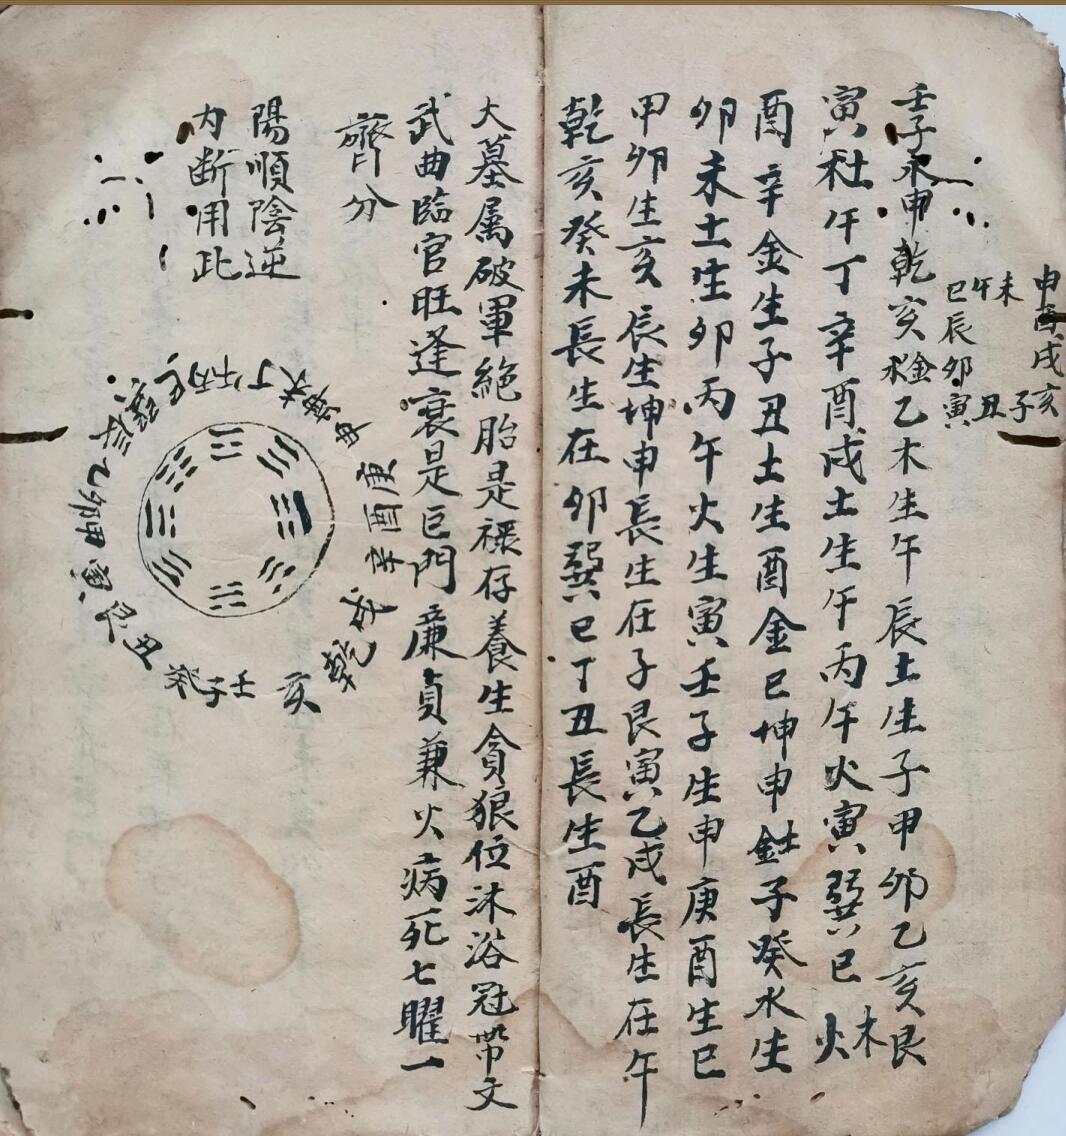 申酉戌亥
未
午
巳辰卯寅
丑
子
壬子水申乾亥金水乙木生午辰土生子甲卯乙亥艮
寅杜午丁辛酉戌土生午丙午火寅巽巳火木
酉辛金生子丑土生酉金巳坤申金土子癸水生
卯未土生卯丙午火生寅壬子生申庚酉生巳
甲卯生亥辰生坤申長生在子艮寅乙戌長生在午
乾亥癸未長生在卯巽巳丁丑長生酉
大墓属破軍絶胎是祿存養生貪狼位沐浴冠帶文
武曲臨官旺逢衰是巨門廉貞兼火病死七曜一
齊分
陽順陰逆
内斷用此
丙午丁未坤申庚酉辛戌乾亥壬子癸丑艮寅甲卯乙辰巽巳